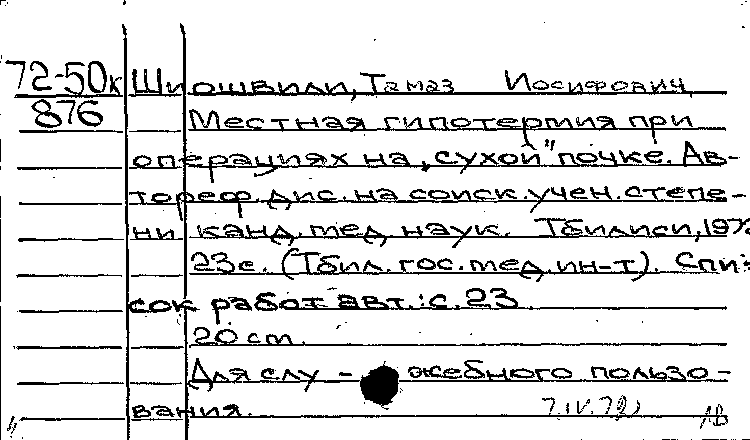 72-50к Шиошвили, Тамаз Иосифович
876 Местная гипотермия при
операциях на „сухой" почке. Ав-
тореф. дис. на соиск. учен. степе-
ни канд. мед. наук. Тбилиси, 1972
23с. (Тбил. гос. мед. ин-т). Спи-
сок работ авт.: с. 23
20 cm.
Для слу - жебного пользо-
вания. 7.IV.72